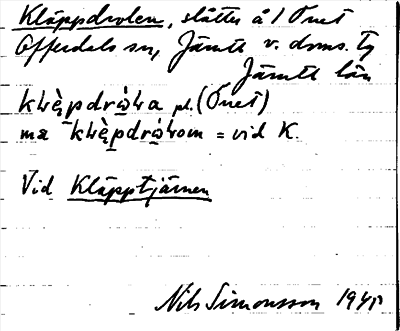 Kläppdrolen, slåtter å 1 Tuet
Offerdals sn, Jämtl v. doms. Tg
Jämtl län
kłèpdròła pl. (Tuet)
mä kłèpdròłom = vid K.
Vid Kläpptjärnen
Nils Simonsson 1941